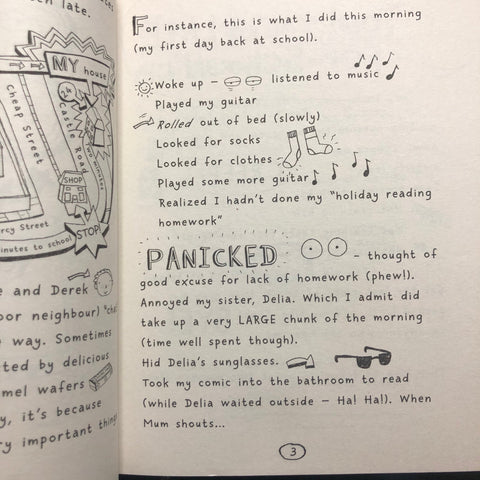 en late.
MY house
24
Castle Road
Cheap Street
two minutes
SHOP
rcy Street
STOP!
minutes to school
e and Derek
oor neighbour)
way. Sometimes
ted by delicious
mel wafers
y, it's because
ry important things
For instance, this is what I did this morning
(my first day back at school).
Woke up – listened to music
Played my guitar
Rolled out of bed (slowly)
Looked for socks
Looked for clothes
Played some more guitar
Realized I hadn't done my "holiday reading
homework"
PANICKED – thought of
good excuse for lack of homework (phew!).
Annoyed my sister, Delia. Which I admit did
take up a very LARGE chunk of the morning
(time well spent though).
Hid Delia's sunglasses.
Took my comic into the bathroom to read
(while Delia waited outside – Ha! Ha!). When
Mum shouts...
3